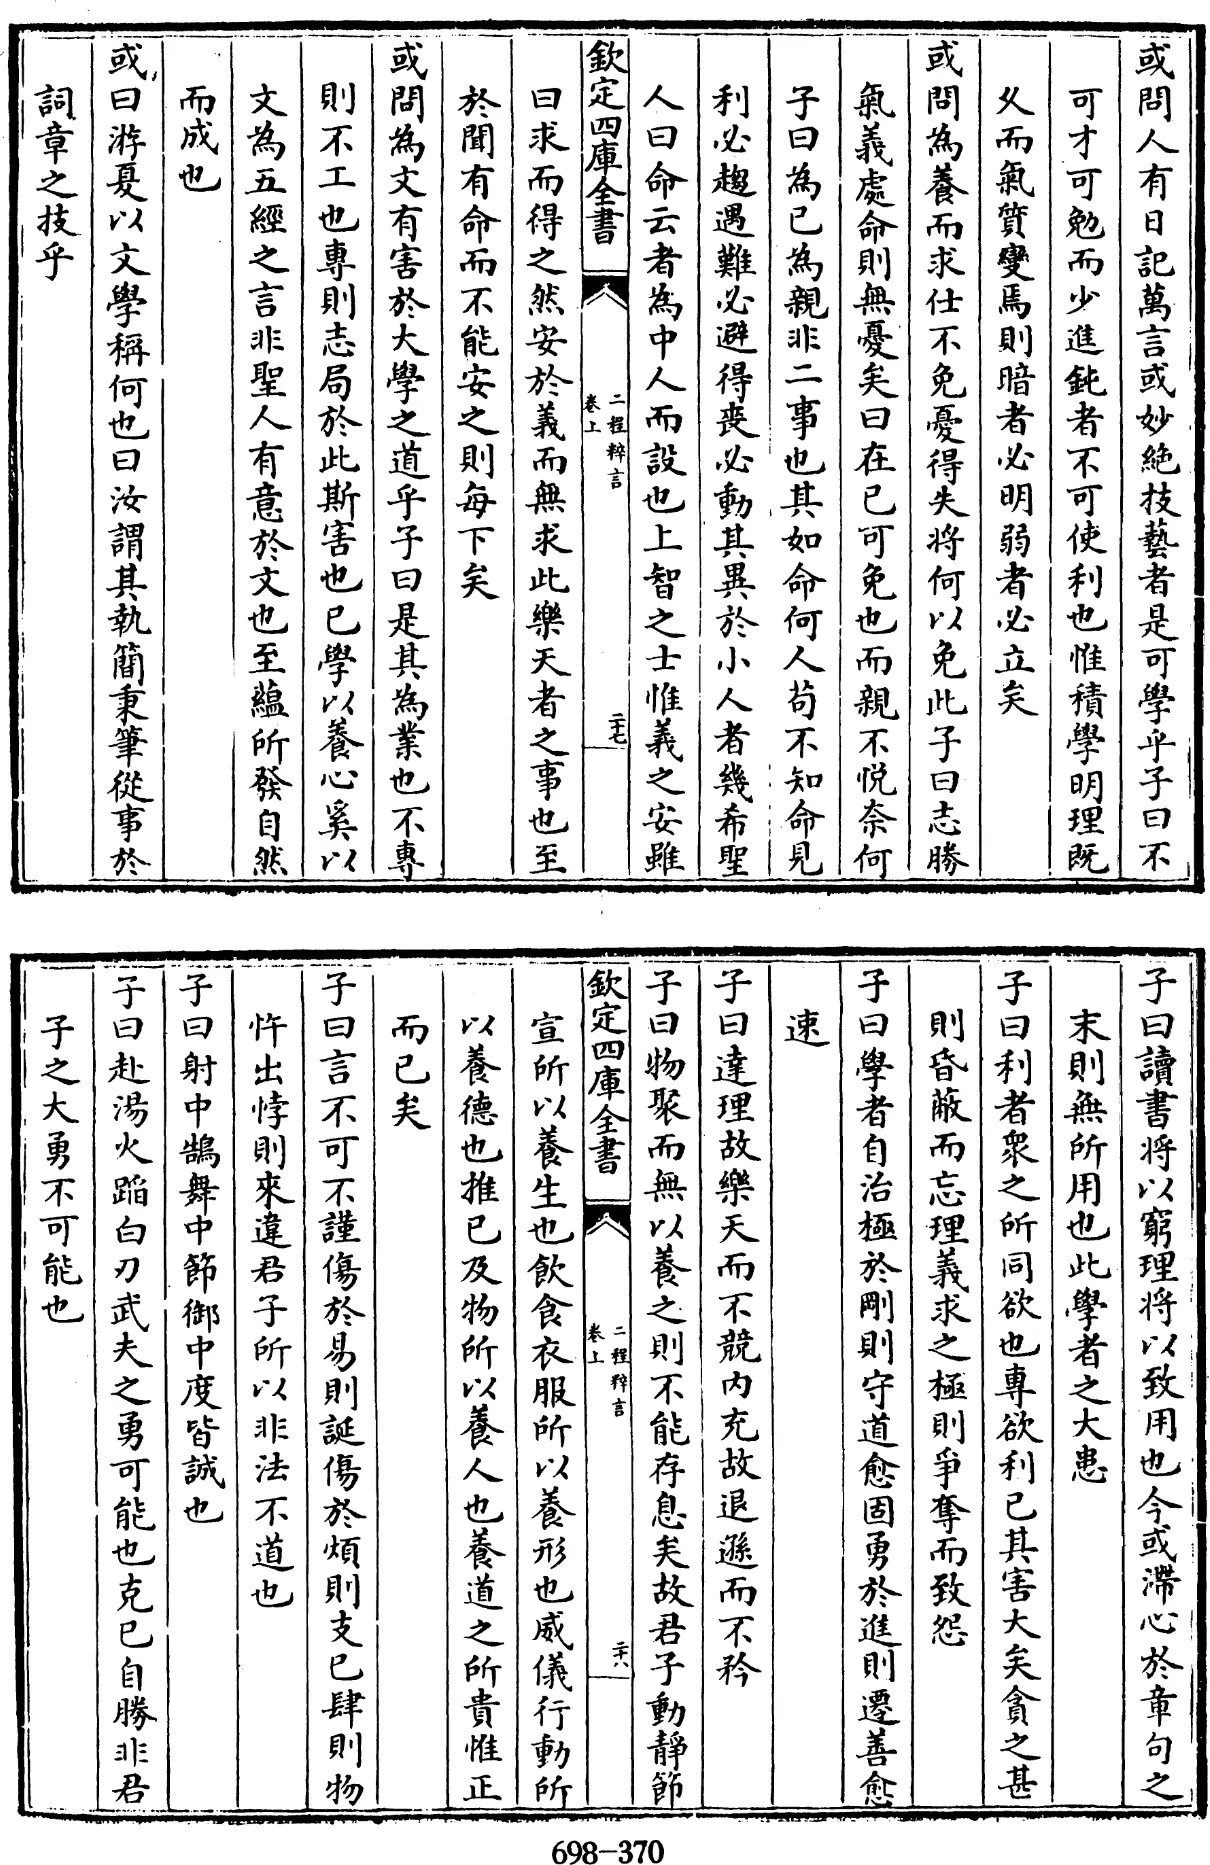 或問人有日記萬言或妙絶技藝者是可學乎子曰不
可才可勉而少進鈍者不可使利也惟積學明理既
久而氣質變焉則暗者必明弱者必立矣
或問為養而求仕不免憂得失將何以免此子曰志勝
氣義處命則無憂矣曰在已可免也而親不悦奈何
子曰為已為親非二事也其如命何人苟不知命見
利必趨遇難必避得喪必動其異於小人者幾希聖
人曰命云者為中人而設也上智之士惟義之安雖
欽定四庫全書
二程粹言
卷上
二十七
曰求而得之然安於義而無求此樂天者之事也至
於聞有命而不能安之則每下矣
或問為文有害於大學之道乎子曰是其為業也不專
則不工也專則志局於此斯害也已學以養心奚以
文為五經之言非聖人有意於文也至蘊所發自然
而成也
或曰游夏以文學稱何也曰汝謂其執簡秉筆從事於
詞章之技乎
子曰讀書將以窮理將以致用也今或滯心於章句之
末則無所用也此學者之大患
子曰利者衆之所同欲也專欲利已其害大矣貪之甚
則昏蔽而忘理義求之極則爭奪而致怨
子曰學者自治極於剛則守道愈固勇於進則遷善愈
速
子曰達理故樂天而不競内充故退遜而不矜
子曰物聚而無以養之則不能存息矣故君子動靜節
欽定四庫全書
二程粹言
卷上
二十八
宣所以養生也飲食衣服所以養形也威儀行動所
以養德也推已及物所以養人也養道之所貴惟正
而已矣
子曰言不可不謹傷於易則誕傷於煩則支已肆則物
忤出悖則來違君子所以非法不道也
子曰射中鵠舞中節御中度皆誠也
子曰赴湯火蹈白刃武夫之勇可能也克已自勝非君
子之大勇不可能也
698-370